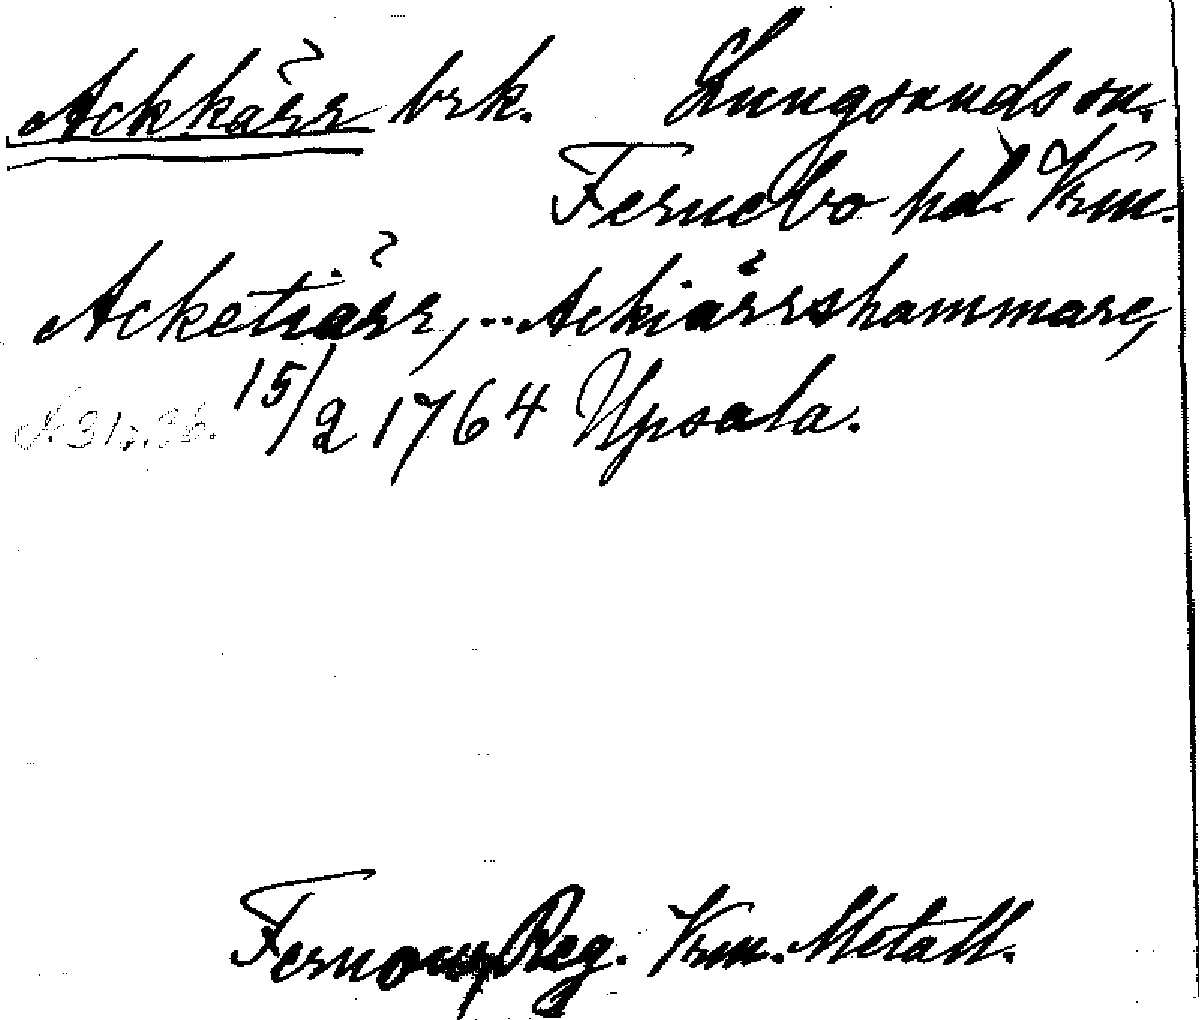 Ackkärr brk. Lungsunds sn.
Fernebo hd. Vrm.
Acketiärr, .. Ackiärrshammare,
15/2 1764 Upsala.
Fernow, Reg. Vrm. Metall.